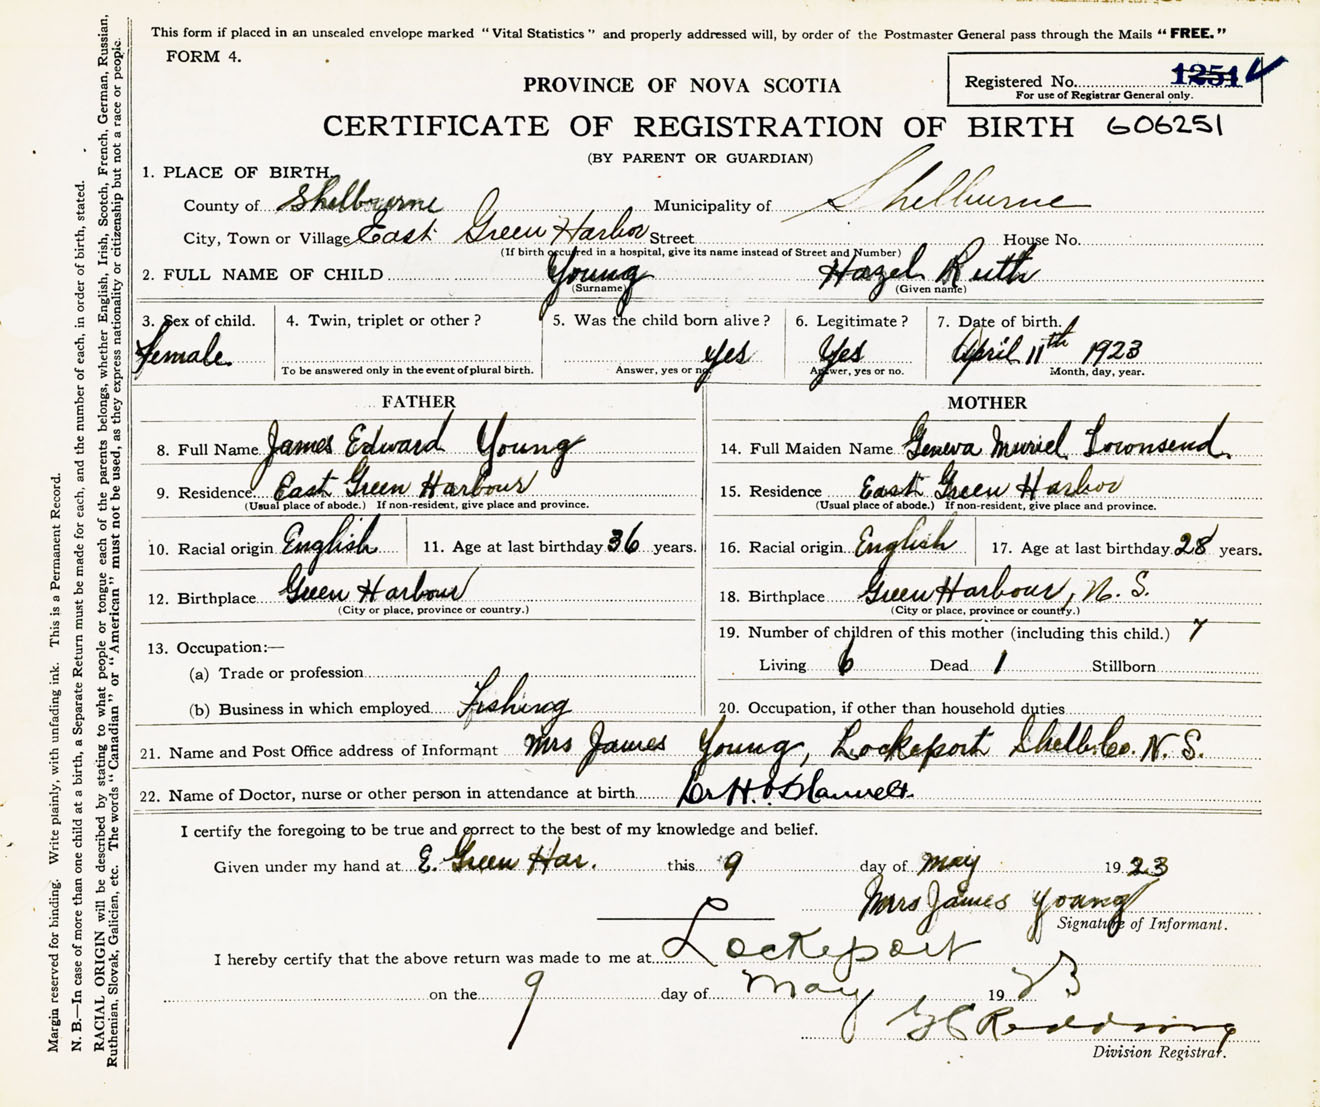 This form if placed in an unsealed envelope marked "Vital Statistics" and properly addressed will, by order of the Postmaster General pass through the Mails "FREE."
FORM 4.
Registered No. 1251
For use of Registrar General only.
PROVINCE OF NOVA SCOTIA
CERTIFICATE OF REGISTRATION OF BIRTH 606251
(BY PARENT OR GUARDIAN)
1. PLACE OF BIRTH.
County of Shelbourne Municipality of Shelburne
City, Town or Village East Green Harbor Street House No.
(If birth occurred in a hospital, give its name instead of Street and Number)
2. FULL NAME OF CHILD Young Hazel Ruth
(Surname) (Given name)
3. Sex of child. 4. Twin, triplet or other? 5. Was the child born alive? 6. Legitimate? 7. Date of birth.
female yes Yes April 11th 1923
To be answered only in the event of plural birth. Answer, yes or no Answer, yes or no. Month, day, year.
FATHER MOTHER
8. Full Name James Edward Young 14. Full Maiden Name Geneva Muriel Townsend.
9. Residence East Green Harbour 15. Residence East Green Harbor
(Usual place of abode.) If non-resident, give place and province. (Usual place of abode.) If non-resident, give place and province.
10. Racial origin English 11. Age at last birthday 36 years. 16. Racial origin English 17. Age at last birthday 28 years.
12. Birthplace Green Harbour 18. Birthplace Green Harbour, N. S.
(City or place, province or country.) (City or place, province or country.)
13. Occupation:— 19. Number of children of this mother (including this child.) 7
(a) Trade or profession Living 6 Dead 1 Stillborn
(b) Business in which employed Fishing 20. Occupation, if other than household duties
21. Name and Post Office address of Informant Mrs James Young, Lockeport Shelb. Co. N. S.
22. Name of Doctor, nurse or other person in attendance at birth Dr H.
I certify the foregoing to be true and correct to the best of my knowledge and belief.
Given under my hand at E. Green Har. this 9 day of May 1923
Mrs James Young
Signature of Informant.
I hereby certify that the above return was made to me at Lockeport
on the 9 day of May 1923
Redding
Division Registrar.
Margin reserved for binding. Write plainly, with unfading ink. This is a Permanent Record.
N. B.—In case of more than one child at a birth, a Separate Return must be made for each, and the number of each, in order of birth, stated.
RACIAL ORIGIN will be described by stating to what people or tongue each of the parents belongs, whether English, Irish, Scotch, French, German, Russian,
Ruthenian, Slovak, Galician, etc. The words "Canadian" or "American" must not be used, as they express nationality or citizenship but not a race or people.